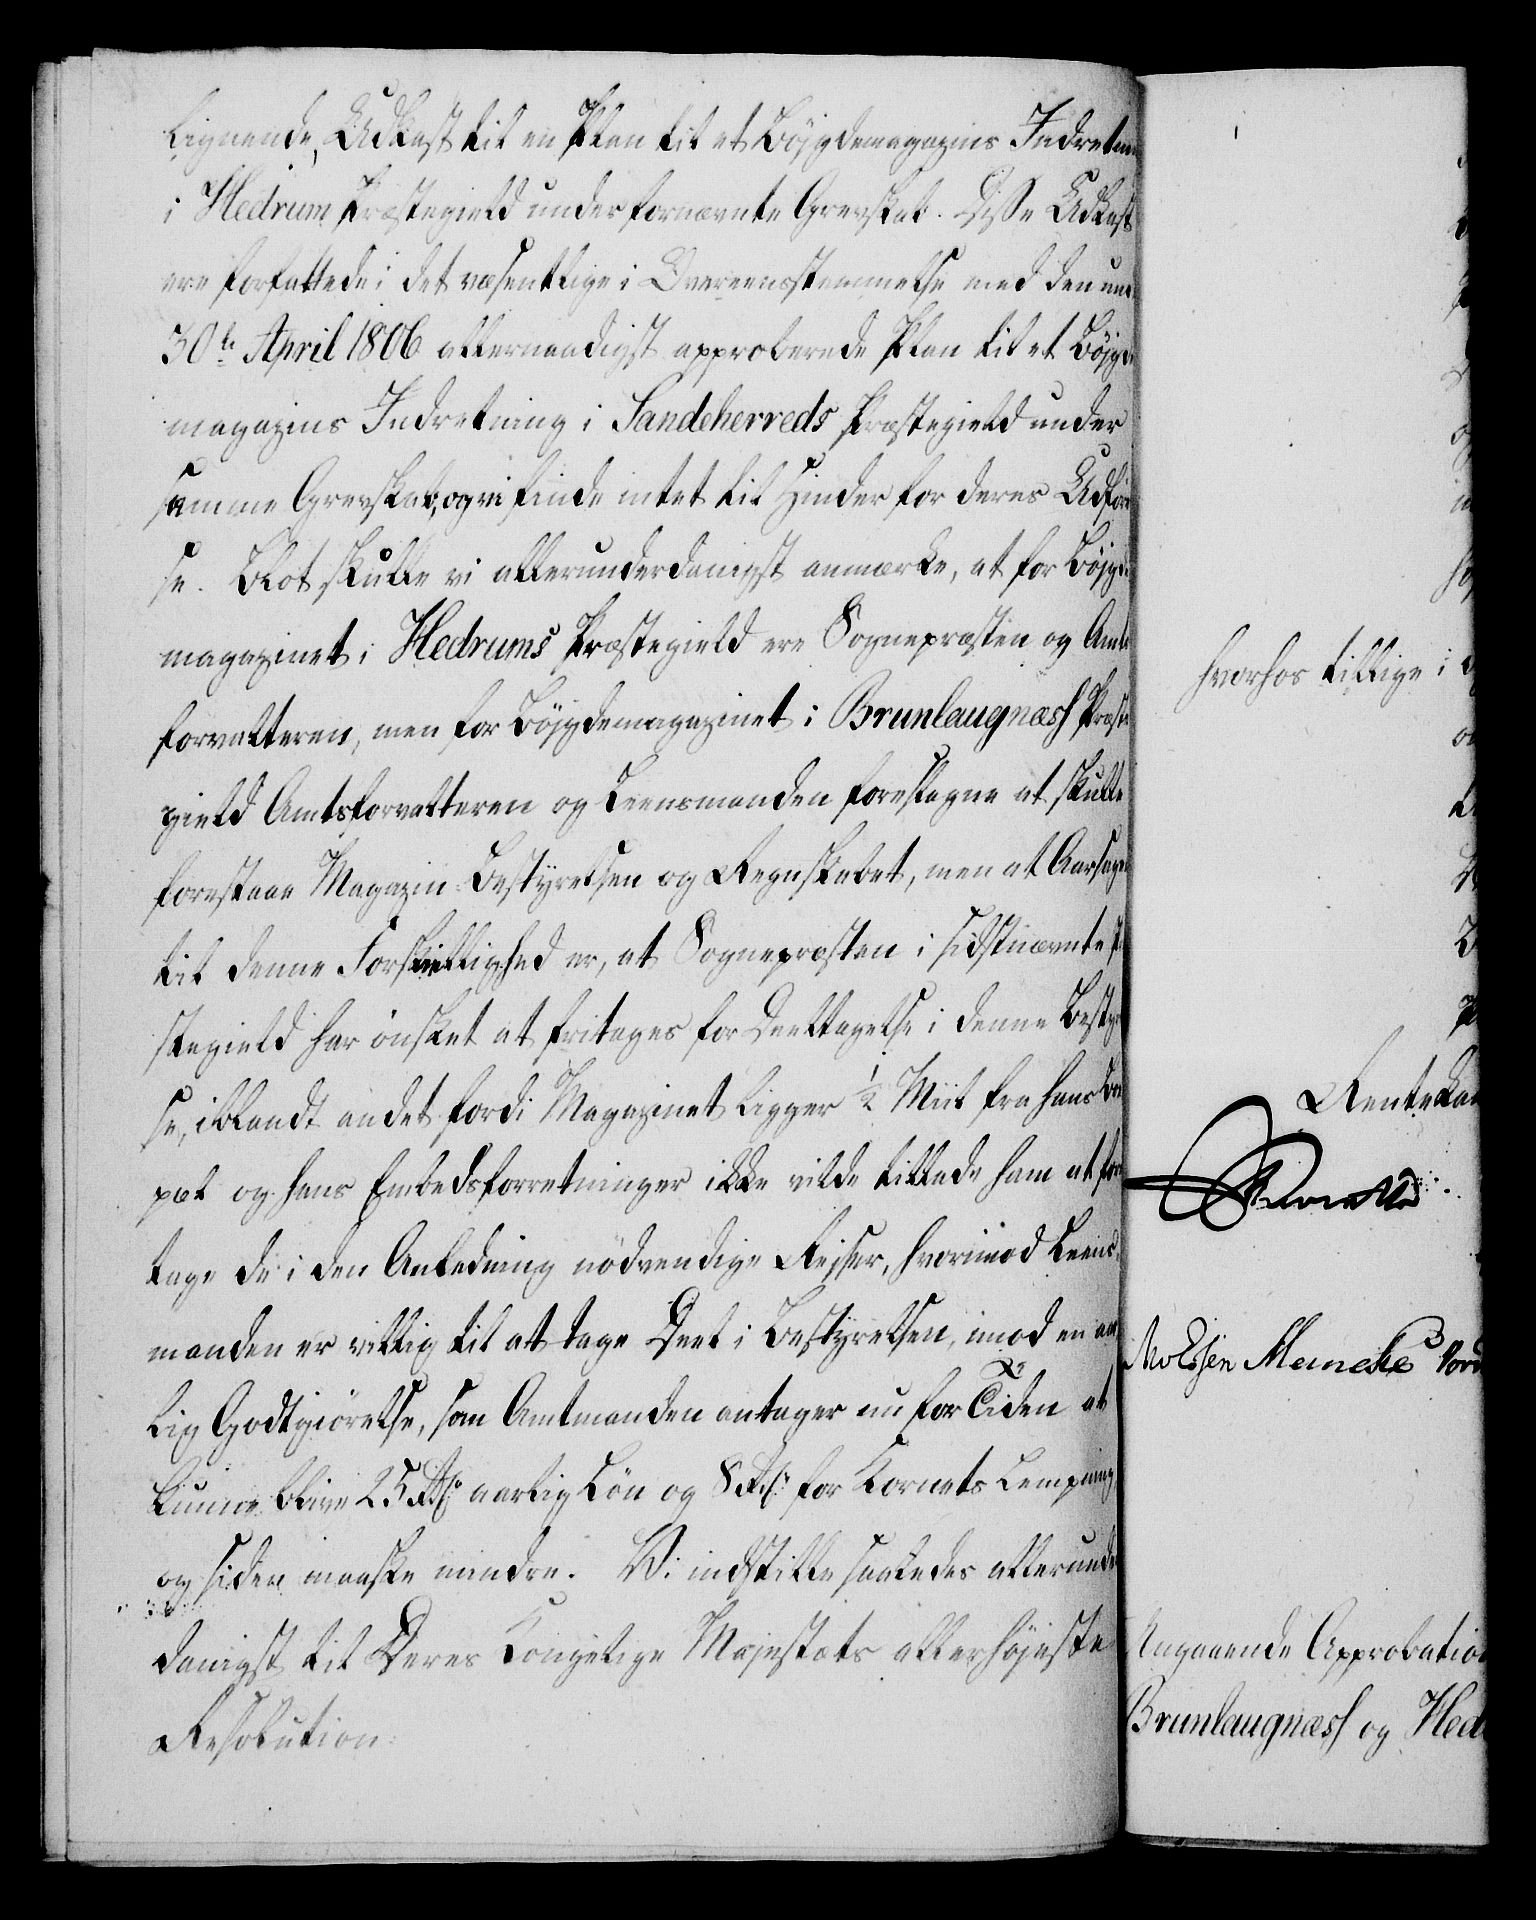 lignende, Udkast til en Plan til et Böjgdemagazins Indretn
i Hedrum Præstegield under fornævnte Grevskab. Disse Udkast
ere forfattede i det væsentlige i Overeensstemmelse med den un
30te April 1806 allernaadigst approberede Plan til et Böjgde
magazins Indretning i Sandeherreds Præstegield under
samme Grevskab, og vi finde intet til Hinder for deres Udför
se. Blot skulle vi allerunderdanigst anmærke, at for Böjgde
magazinet i Hedrums Præstegield ere Sognepræsten og Amts
forvalteren, men for Böjgdemagazinet i Brunlaugnæss Præste
gield Amtsforvalteren og Leensmanden foreslagne at skulle
forestaae Magazin-Bestyrelsen og Regnskabet, men at Aarsagen
til denne Forskiellighed er, at Sognepræsten i sidstnævnte P
stegield har önsket at fritages for Deeltagelse i denne Besty
se, iblandt andet fordi Magazinet ligger 1/2 Miil fra hans Bo
pæl og hans Embedsforretninger ikke vilde tillade ham at fore
tage de i den Anledning nödvendige Rejser, hvorimod Leens
manden er villig til at tage Deel i Bestyrelsen, imod en aar
lig Godtgiörelse, som Amtmanden antager nu for Tiden at
kunne blive 25 Rd: aarlig Lön og 8 Rd: for Kornets Lempning
og siden maaske mindre. Vi indstille saaledes allerunder
danigst til Deres Kongelige Majestæts allerhöjeste
Resolution:
hvorhos tillige i
Rentekam
Meincke
Angaaende Approbation
Brunlaugnæss og Hed